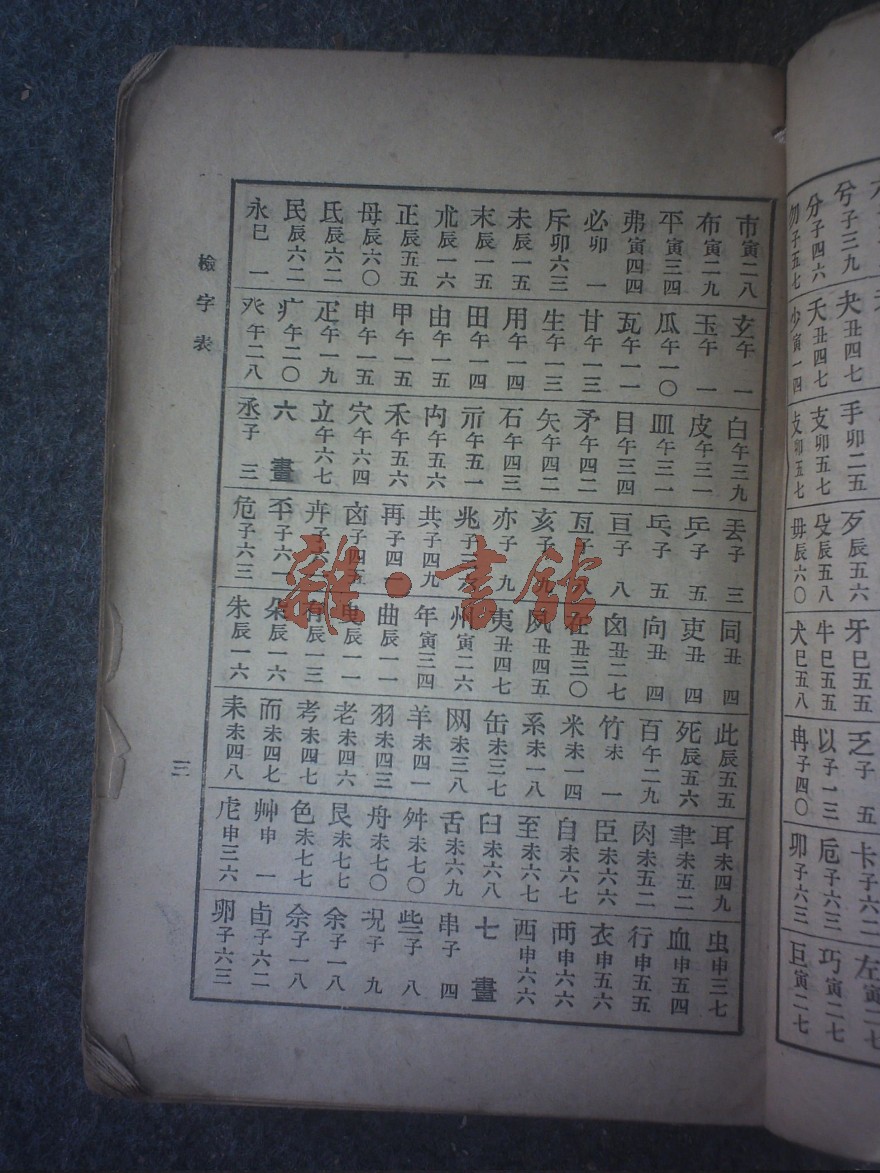 兮子三九
分子四六
勿子五七
夬丑四七
夭丑四七
少寅一四
手卯二五
支卯五七
攴卯五七
歹辰五六
殳辰五八
毋辰六〇
牙巳五五
牛巳五五
犬巳五八
乏子五
以子一三
冉子四〇
卡子六二
卮子六三
卯子六三
左寅二七
巧寅二七
巨寅二七
市寅二八
布寅二九
平寅三四
弗寅四四
必卯一
斥卯六三
未辰一五
末辰一五
朮辰一六
正辰五五
母辰六〇
氏辰六二
民辰六二
永巳一
玄午一
玉午一
瓜午一〇
瓦午一一
甘午一三
生午一三
用午一四
田午一四
由午一五
甲午一五
申午一五
疋午一九
疒午二〇
癶午二八
白午三九
皮午三一
皿午三一
目午三四
矛午四二
矢午四二
石午四三
示午五一
禸午五六
禾午五六
穴午六四
立午六七
六畫
丞子三
丟子三
乒子五
乓子五
亘子八
亙子八
亥子九
亦子九
兆子三六
共子四九
再子四一
卤子四五
卉子六一
丕子六一
危子六三
同丑四
吏丑四
向丑四
囟丑二七
在丑三〇
夙丑四五
夷丑四七
州寅二六
年寅三四
曲辰一一
曳辰一一
有辰一三
朵辰一六
朱辰一六
此辰五五
死辰五六
百午二九
竹未一
米未一四
系未一八
缶未三七
网未三八
羊未四一
羽未四三
老未四六
考未四七
而未四七
耒未四八
耳未四九
聿未五二
肉未五二
臣未六六
自未六七
至未六七
臼未六八
舌未六九
舛未七〇
舟未七〇
艮未七七
色未七七
艸申一
虍申三六
虫申三七
血申五四
行申五五
衣申五六
襾申六六
西申六六
七畫
串子四
些子八
况子九
余子一八
佘子一八
卣子六二
卵子六三
檢字表
三
雜·書館